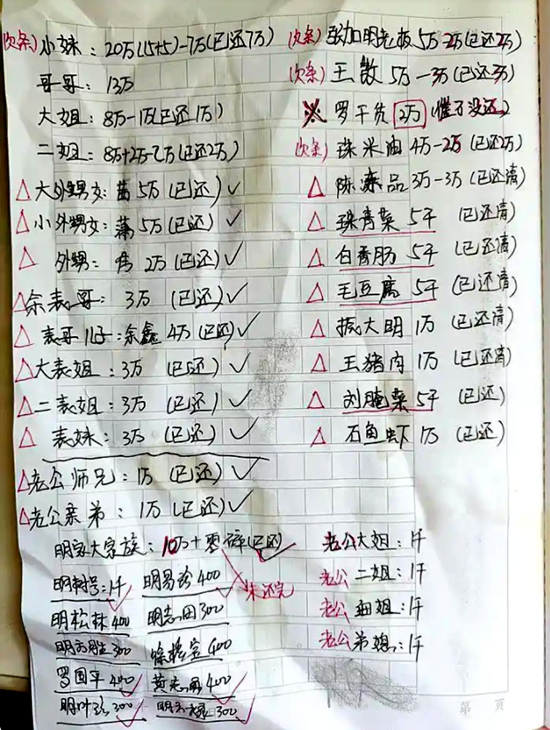 (欠条) 小妹：20万(15+5)-7万(已还7万)
哥哥：13万
大姐：8万-1万(已还1万)
二姐：8万+2万-2万(已还2万)
△大外甥女：苗 5万(已还)✓
△小外甥女：5万(已还)✓
△外甥：2万(已还)✓
△余表哥：3万(已还)✓
△表哥儿子：余鑫 4万(已还)✓
△大表姐：3万(已还)✓
△二表姐：3万(已还)✓
△表妹：3万(已还)✓
△老公师兄：1万(已还)✓
△老公亲弟：1万(已还)✓
明家大家族：10万+零碎(已还)
未还完
明号：1千 明易珍 400
明松林 400 明志国 300
明 300 400
罗国平 400 黄志 400
明叶珍 300 明 300
(欠条) 张加明老板 5万-2万(已还2万)
(欠条) 王 5万-3万(已还3万)
※ 罗干货 2万(催了没还)
(欠条) 珠米油 4万-2万(已还2万)
△ 陈品 3万-3万(已还清)
△ 珠青菜 5千 (已还清)
△ 白香肠 5千 (已还清)
△ 毛豆腐 5千 (已还清)
△ 大明 1万 (已还清)
△ 王猪肉 1万 (已还清)
△ 刘腌菜 5千 (已还)
△ 石鱼虾 1万 (已还)
老公大姐：1千
老公二姐：1千
老公姐：1千
老公弟媳：1千
第 页